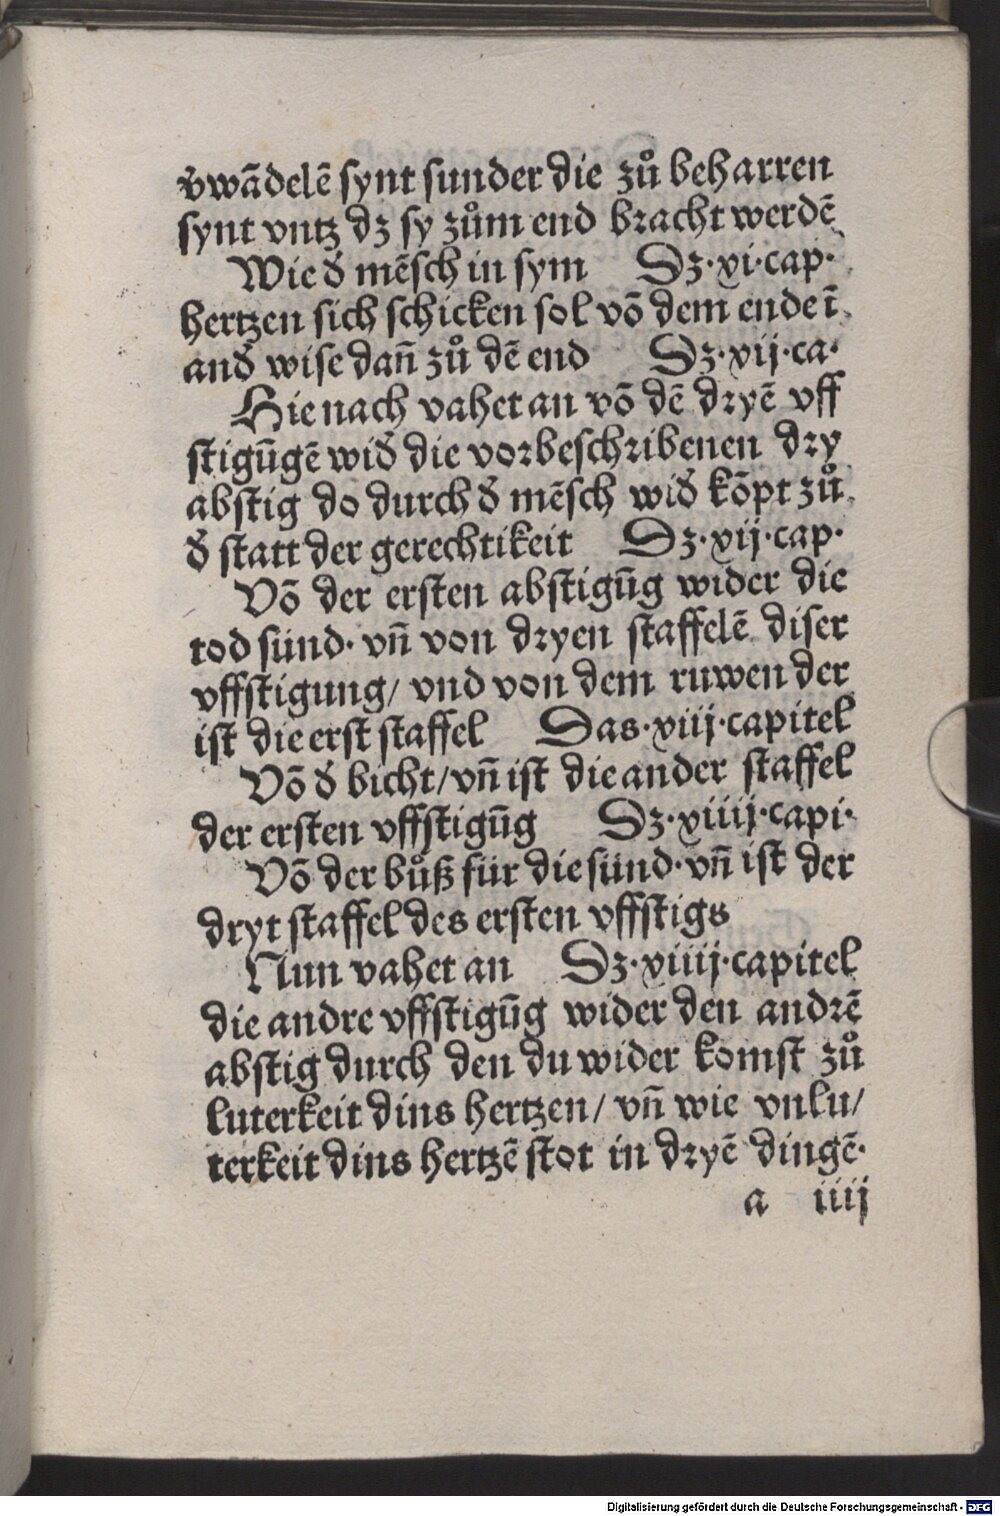 v̄wãdelẽ synt sunder die zů beharren
synt vntz dz sy zům end bracht werdẽ
Wie d̄ mẽsch in sym Dz·xi·cap·
hertzen sich schicken sol võ dem ende ĩ
and̄ wise dañ zů dẽ end Dz·xij·ca·
Hie nach vahet an võ dẽ dryẽ vff
stigũgẽ wid̄ die vorbeschribenen dry
abstig do durch d̄ mẽsch wid̄ kõpt zů
d̄ statt der gerechtikeit Dz·xij·cap·
Võ der ersten abstigũg wider die
tod sünd· vñ von dryen staffelẽ diser
vffstigung/ vnd von dem ruwen der
ist die erst staffel Das·xiij·capitel
Võ d̄ bicht/vñ ist die ander staffel
der ersten vffstigũg Dz·xiiij·capi·
Võ der bůß für die sünd·vñ ist der
dryt staffel des ersten vffstigs
Nun vahet an Dz·xiiij·capitel
die andre vffstigũg wider den andrẽ
abstig durch den du wider komst zů
luterkeit dins hertzen/ vñ wie vnlu/
terkeit dins hertzẽ stot in dryẽ dingẽ·
a iiij
Digitalisierung gefördert durch die Deutsche Forschungsgemeinschaft - DFG